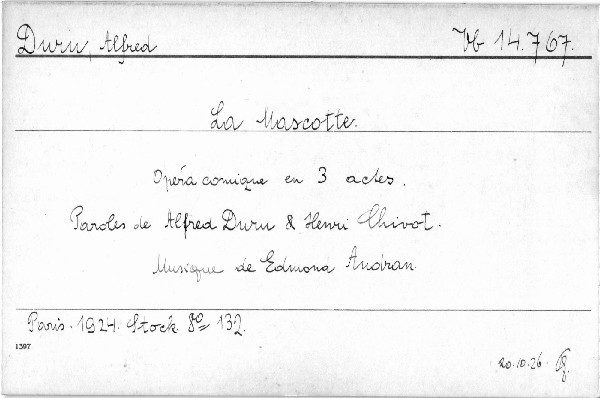 Duru, Alfred Vb 14.767.
La Mascotte.
Opéra comique en 3 actes.
Paroles de Alfred Duru & Henri Chivot.
Musique de Edmond Andran.
Paris. 1924. Stock. 8º 132.
1397
20.10.26